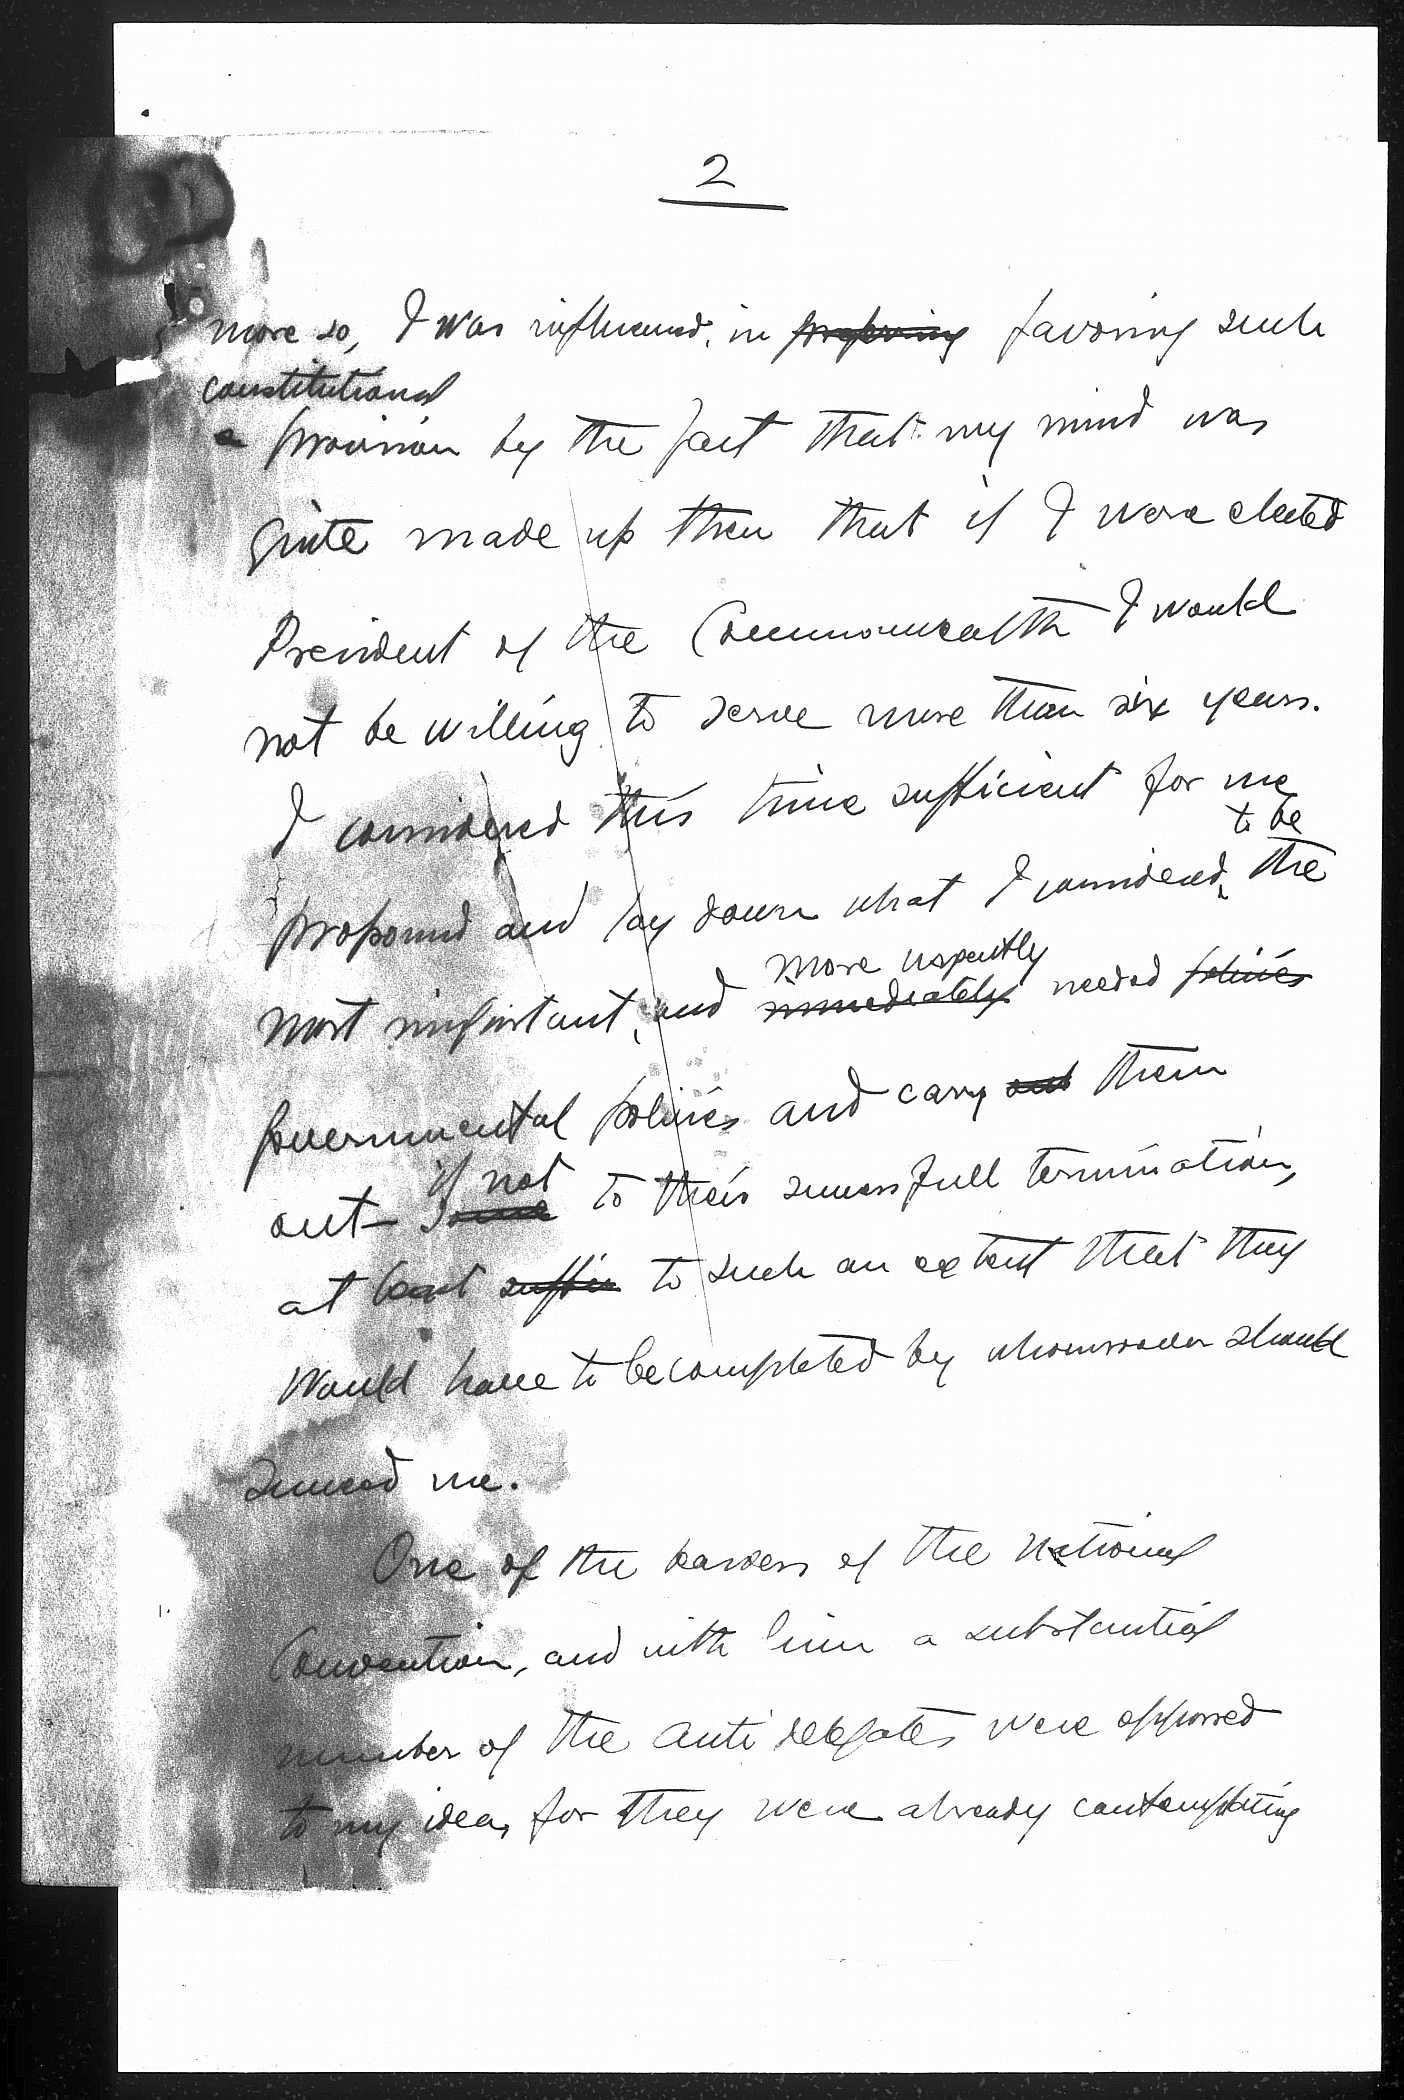 2
more so, I was influenced, in preferring favoring such
constitutional
a provision by the fact that my mind was
quite made up then that if I were elected
President of the Commonwealth I would
not be willing to serve more than six years.
I considered this time sufficient for me
to be
propound and lay down what I considered, the
more urgently
most important, and immediately needed policies
governmental policies and carry out them
if not
out to their successfull termination,
at least suffic to such an extent that they
would have to be completed by whomsoever should
succeed me.
One of the leaders of the National
Convention, and with him a substantial
number of the anti delegates were opposed
to my idea, for they were already contemplating